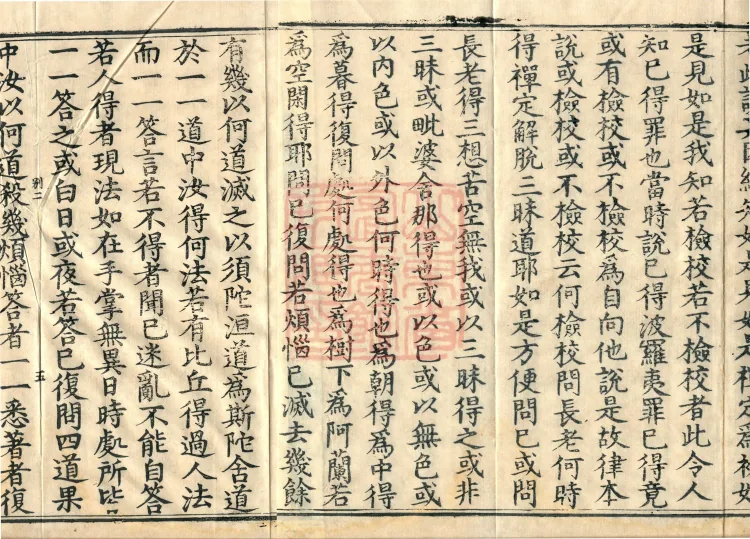 是見如是我知若檢校若不檢校者此令人
知巳得罪也當時說巳得波羅夷罪巳得竟
或有檢校或不檢校爲自向他說是故律本
說或檢校或不檢校云何檢校問長老何時
得禪定解脫三昧道耶如是方便問巳或問
長老得三想苦空無我或以三昧得之或非
三昧或毗婆舍那得也或以色或以無色或
以內色或以外色何時得也爲朝得爲中得
爲暮得復問處何處得也爲樹下爲阿蘭若
爲空閑得耶問巳復問若煩惱巳滅去幾餘
有幾以何道滅之以須陀洹道爲斯陀含道
於一一道中汝得何法若有比丘得過人法
而一一答言若不得者聞巳迷亂不能自答
若人得者現法如在手掌無異日時處所皆
一一答之或白日或夜若答巳復問四道果
五
中汝以何道殺幾煩惱答者一一悉著者復